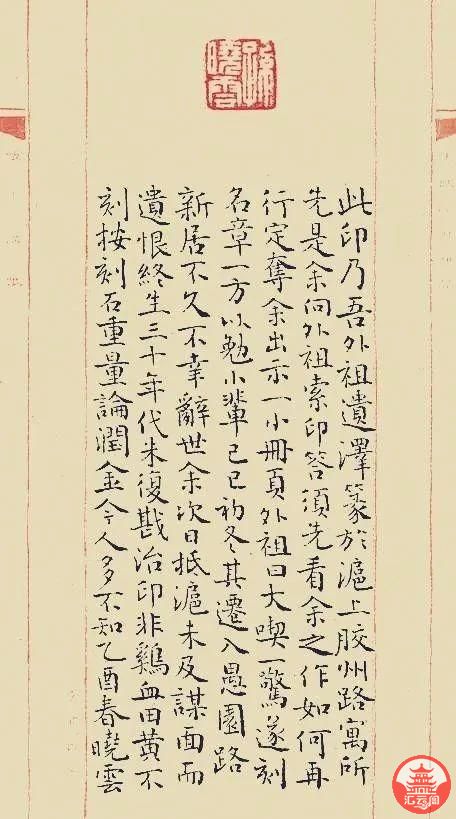 孫曉雲
此印乃吾外祖遺澤篆於滬上膠州路寓所
先是余向外祖索印答須先看余之作如何再
行定奪余出示一小冊頁外祖曰大喫一驚遂刻
名章一方以勉小輩己巳初冬其遷入愚園路
新居不久不幸辭世余次日抵滬未及謀面而
遺恨終生三十年代朱復戡治印非鷄血田黃不
刻按刻石重量論潤金今人多不知乙酉春曉雲
汇云阁